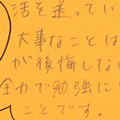 活を送ってい
大事なことは
が後悔しない
全力で勉強に
ことです。